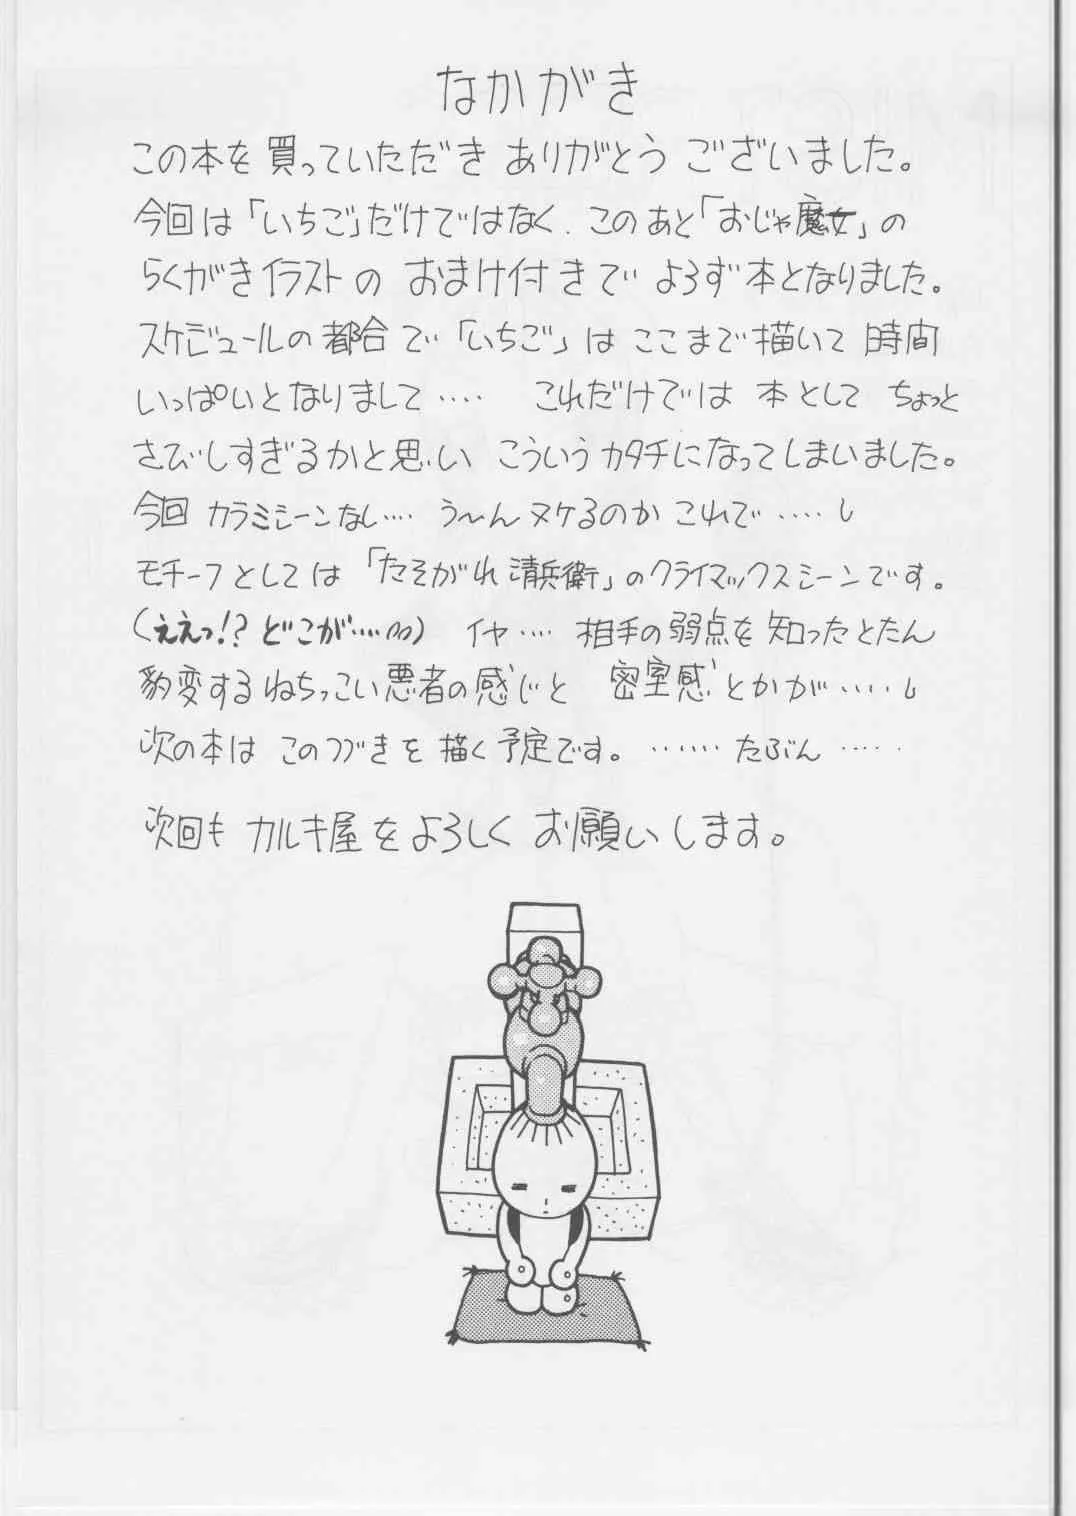 なかがき
この本を買っていただきありがとうございました。
今回は「いちご」だけではなく、このあと「おじゃ魔女」の
らくがきイラストのおまけ付きでよろず本となりました。
スケジュールの都合で「いちご」はここまで描いて時間
いっぱいとなりまして‥‥ これだけでは本としてちょっと
さびしすぎるかと思いこういうカタチになってしまいました。
今回カラミシーンなし‥‥ う〜んヌケるのかこれで‥‥
モチーフとしては「たそがれ清兵衛」のクライマックスシーンです。
(ええっ!? どこが‥‥) イヤ‥‥ 相手の弱点を知ったとたん
豹変するねちっこい悪者の感じと 密室感とかが‥‥
次の本はこのつづきを描く予定です。‥‥‥たぶん‥‥‥
次回もカルキ屋をよろしくお願いします。